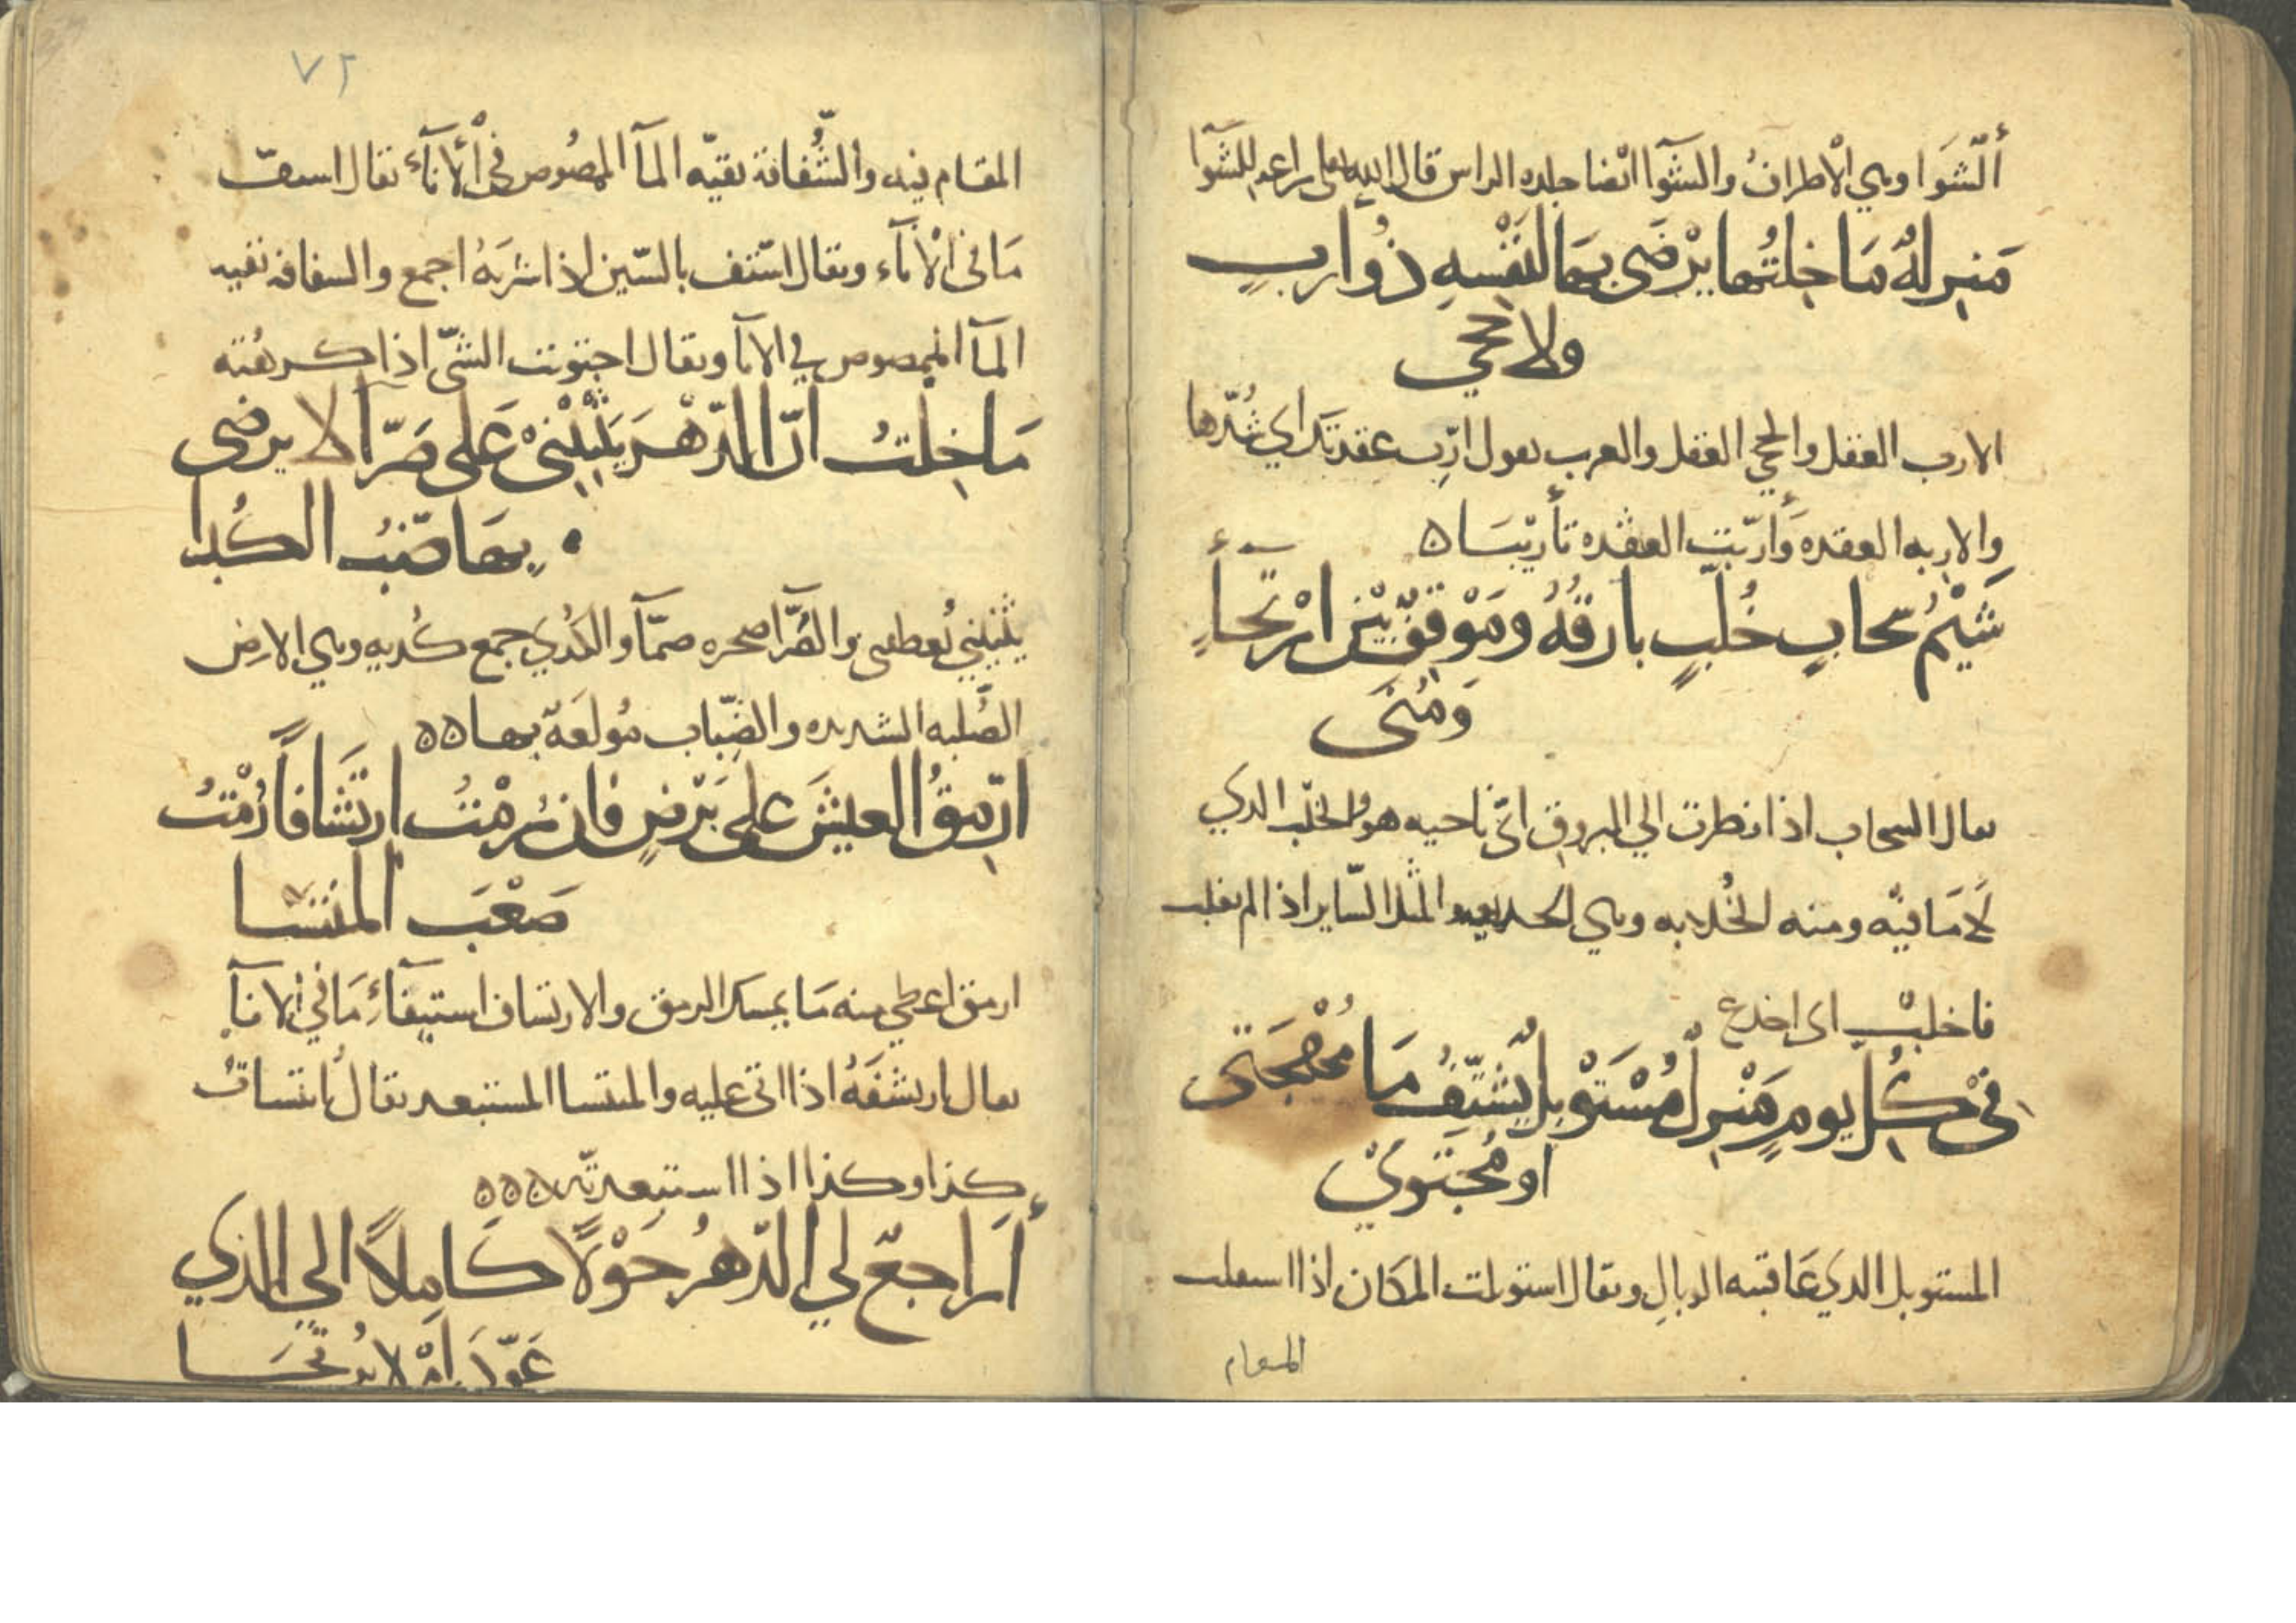 ألشَوا وهي الأطراف والشوآ ايضا جلده الراس قال الله تعالى نزاعه للشوآ
منزلةٌ مَا خِلتُها يرْضَى بها لنفْسِهِ ذُو اربٍ
ولا حجي
الارب العقل والحجي العقل والعرب تقول ارّب عقدتك اي شُدّها
والاربه العقده وَأرّبت العقده تأريبَا ه
شَيْمُ سحابٍ خُلّبٍ بارقُهُ ومَوْقفٌ بَيْن ارْتجآءٍ
وَمُنَى
يقال السحاب اذا نظرت الي البروق اتى ناحيه هو والخلّب الذي
لا مَا فيْه ومنه الخُلابه وهي الخديعه والمثل السّاير اذا لم تغلب
فاخلبْ اى اخدع
في كُلّ يومٍ مَنْزِلٌ مُسْتَوْبِلٌ يَشتَفُّ مَا مُهْجَتى
او مُجتَويْ
المستوبل الدي عَاقبته الوبالِ ويقال استوبلت المكان اذا استثقلت
المقام
٧٢
المقام فيه والشُّفافة بقيّه المآ الممصُوص في الأنآء يقال استفّ
مَا في الأنآء ويقال استف بالسّين اذا شربَهُ اجمع والسفافه بقيه
المآ الممصوص في الانا ويقال اجتويت الشىّ اذا كرهته
مَا خِلتُ انّ الدّهْرَ يَثْنِيْنى عَلى ضَرّآ لا يرضى
بها ضَبُّ الكُدا
يثنيني يُعطفنى والضرّآ صخره صمّآ والكُدي جمع كُديه وهي الارض
الصُّلبه الشديده والضِّباب مُولعَة بها ه ه
ارمِّقُ العيشَ على بَرْضٍ فان رُمْتُ ارتشَافاً رُمْتُ
صَعْبَ المنتسَا
ارمق اعطي منه مَا يمسك الرمق والارتشاف استيفآء مَا في الانآ
يقال ارتشفَهُ اذا اتى عليه والمنتسا المستبعد يقال انتسات
كذا وكذا اذا استبعدتّه ه ه ه
أراجعٌ لي الدّهرُ حَوْلاً كَامِلاً الي الذي
عَوّدَ امْ لا يُرتجَا